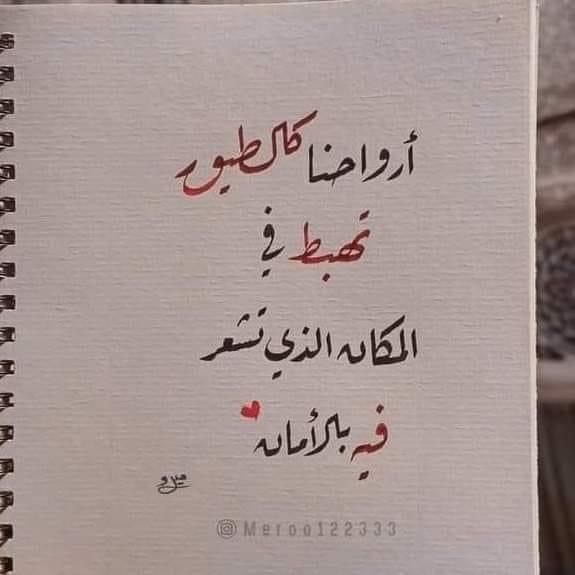 أرواحنا كالطيور
تهبط في
المكان الذي تشعر
فيه بالأمان
ميرو
Meroo122333